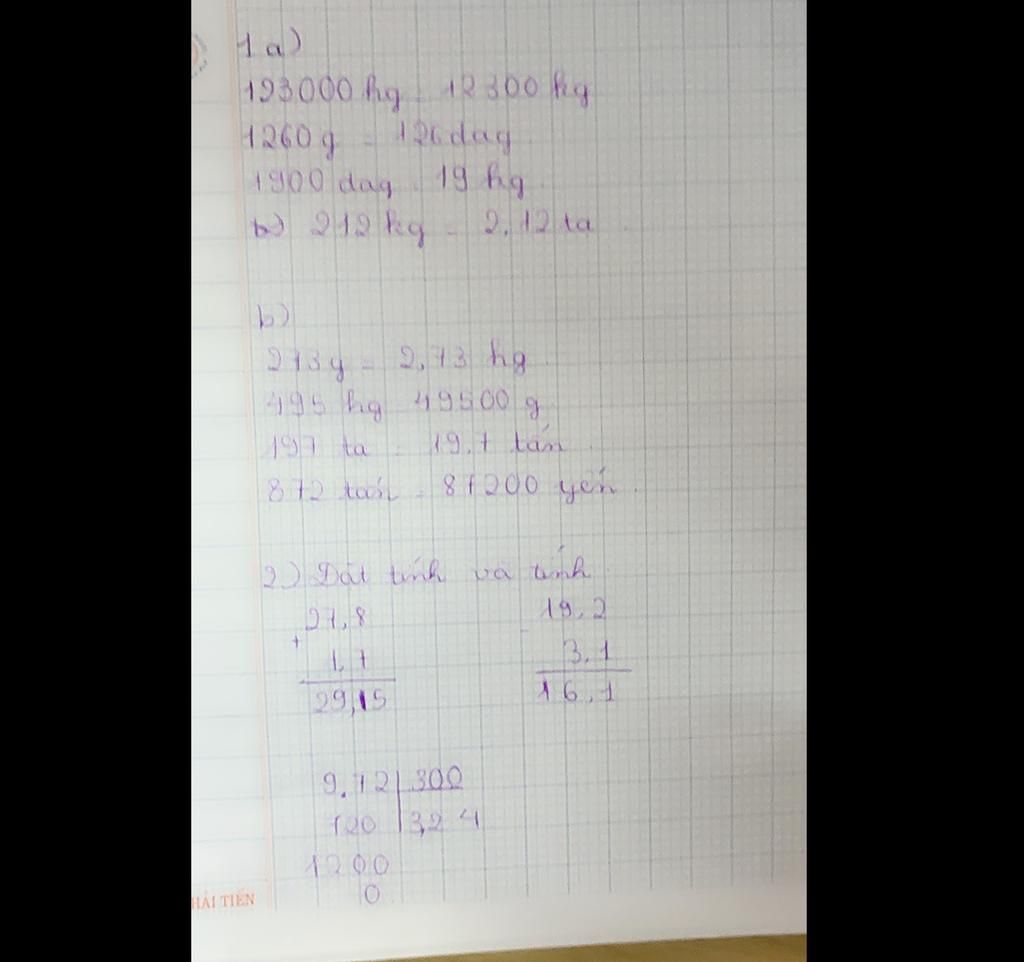 1a)
123000 hg = 12300 kg
1260 g = 126 dag
1900 dag = 19 kg
b) 212 kg = 2,12 tạ
b)
273 g = 2,73 hg
495 hg = 49500 g
197 tạ = 19,7 tấn
872 tấn = 87200 yến
2) Đặt tính và tính
27,8 19,2
+ -
1,7 3,1
29,15 16,1
9,72 300
120 3,24
1200
0
HẢI TIẾN